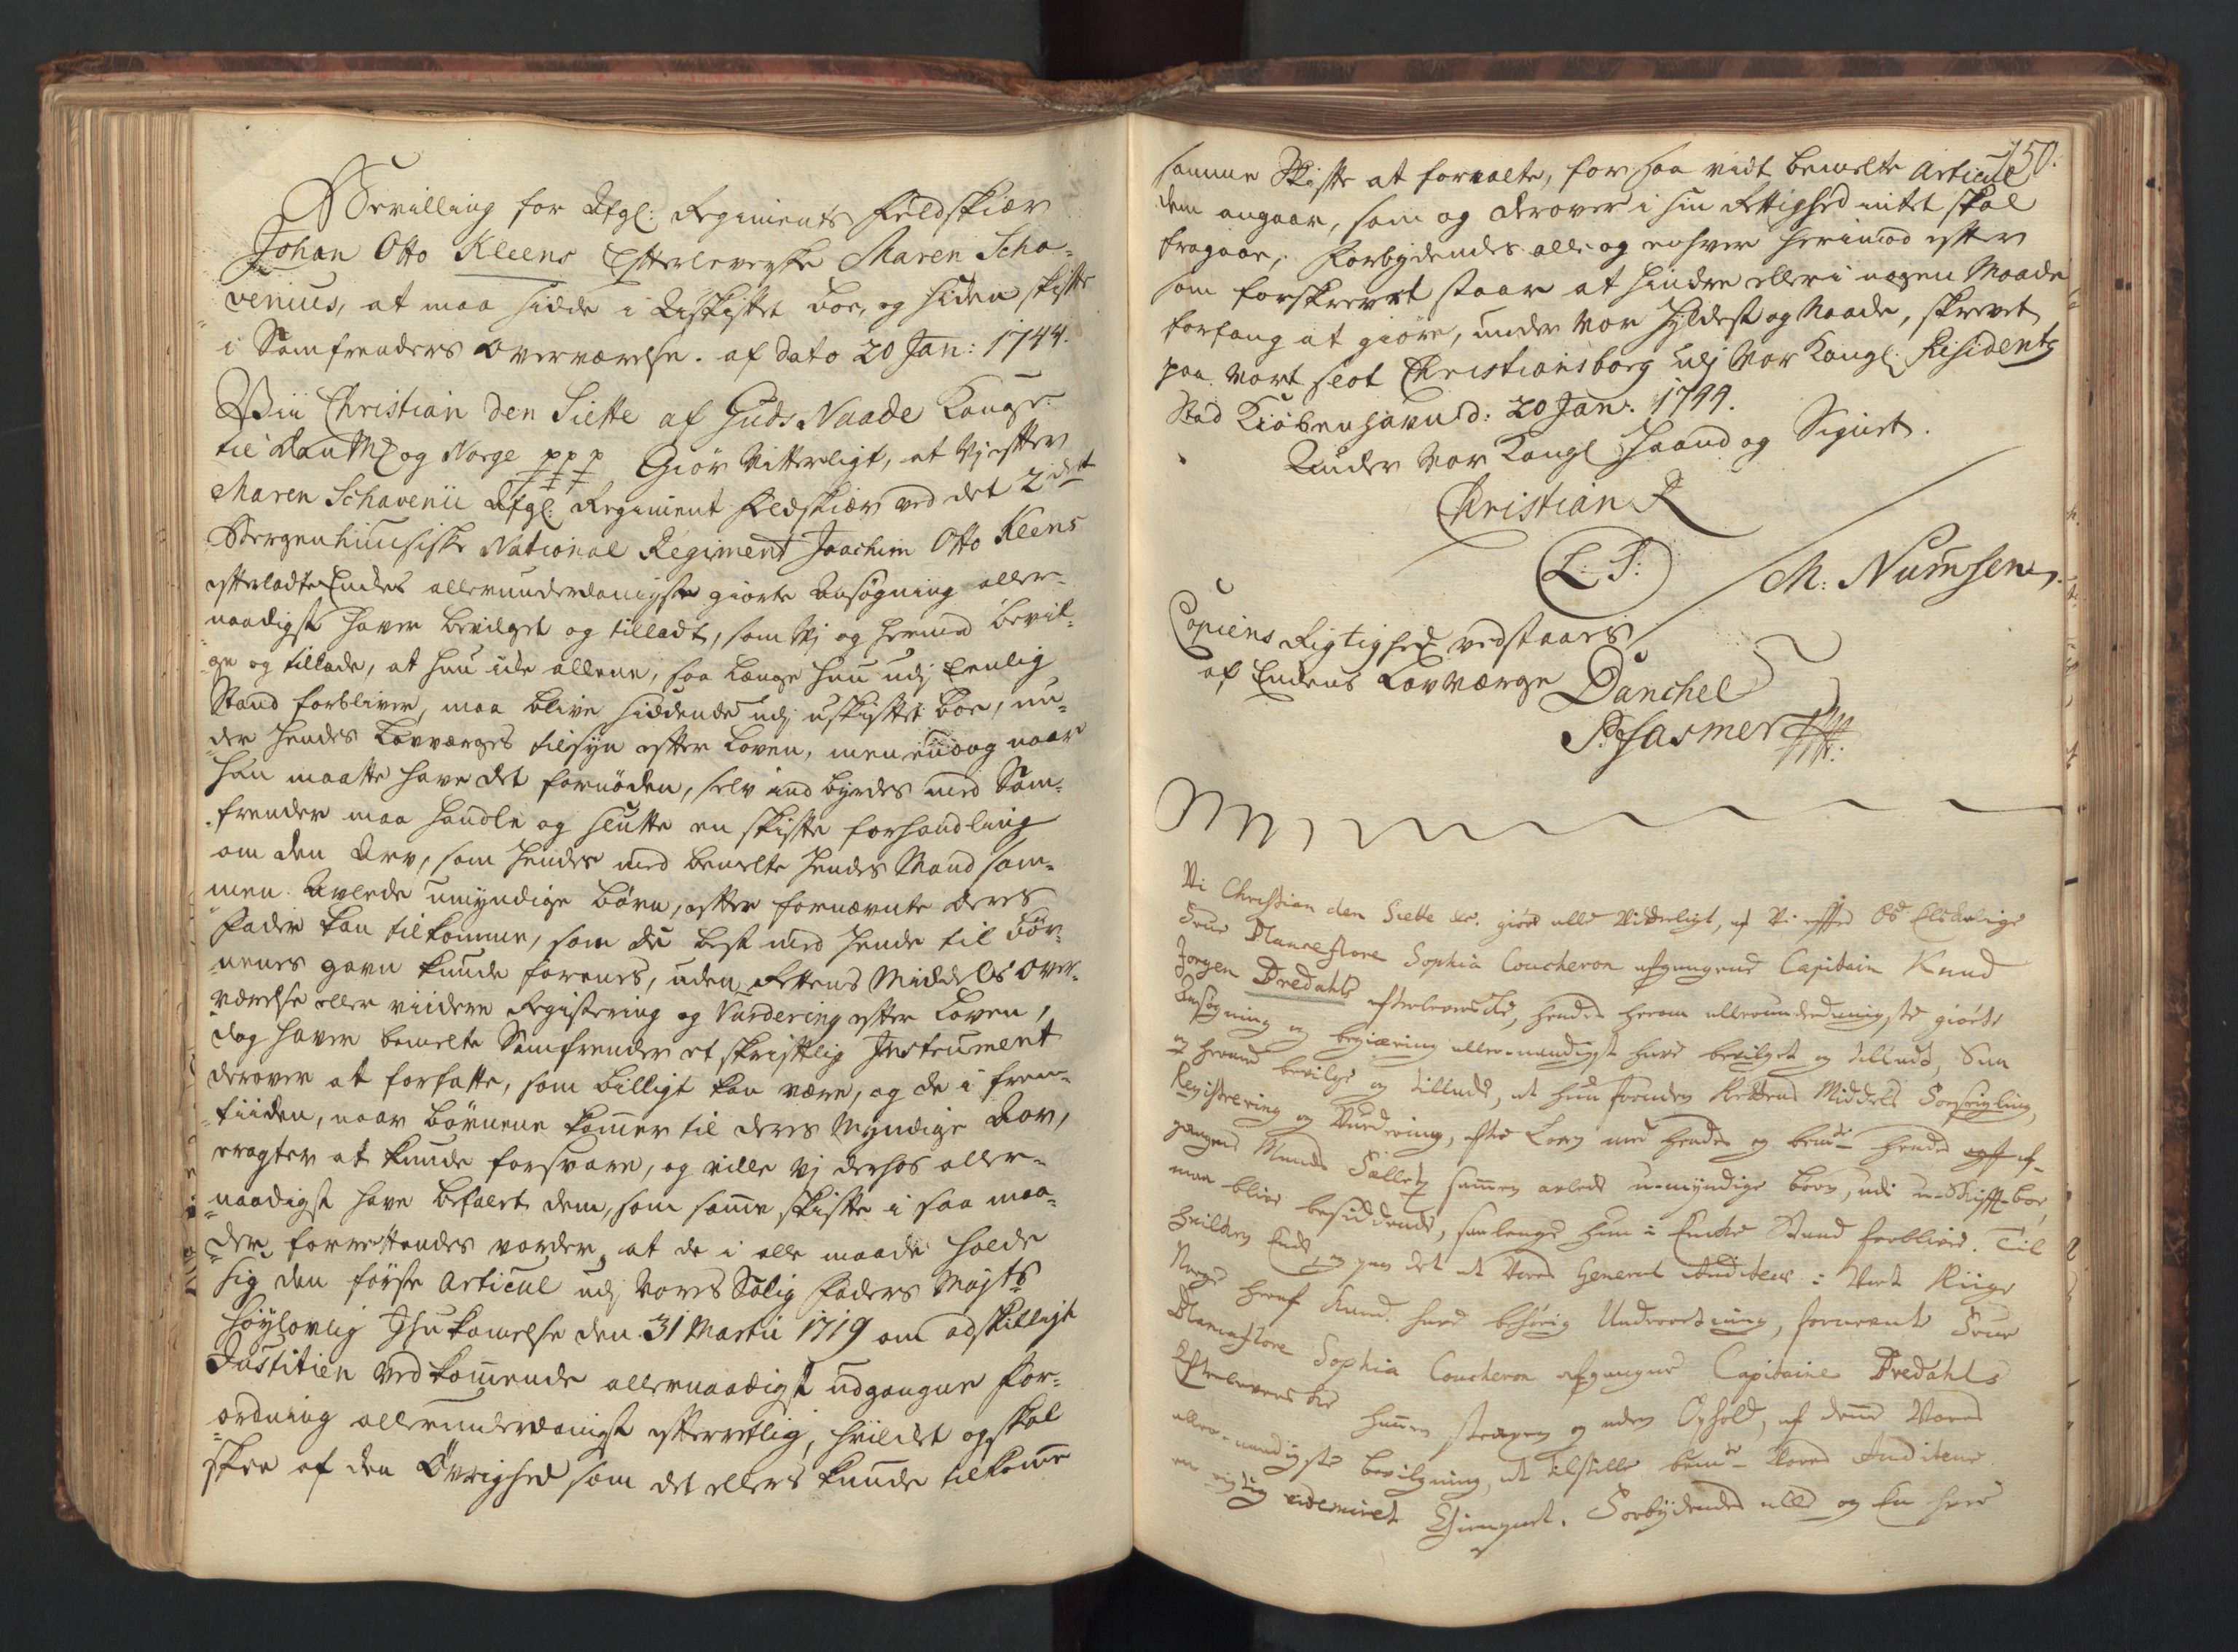 Bevilling for Afgl: Regiments Feldskiær
Johan Otto Kleens Efterleverske Maren Scha-
venius, at maa sidde i Uskiftet boe, og siden skifte
i Samfrenders Overværelse. af dato 20 Jan: 1744.
Wii Christian den Siette af Guds Naade Konge
til Danmk og Norge ppp Giør Vitterligt, at Vj efter
Maren Schavenii Afgl: Regiment Feldskiær ved det 2det
Bergenhuusiske National Regiment Joachim Otto Kleens
efterladte Enkes allerunderdanigste giorte Ansøgning aller-
naadigst haver bevilget og tilladt, som Vj og hermed bevil-
ge og tillade, at hun icke allene, saa længe hun udj Eenlig
Stand forbliver, maa blive siddende udj uskiftet boe, un-
der hendes Lavværges tilsyn efter Loven, men endog naar
hun maatte have det fornöden, selv ind byrdes med Sam-
frender maa handle og slutte en skifte forhandling
om den Arv, som hendes med bemelte hendes Mand sam-
men Avlede umyndige börn, efter fornævnte deres
Fader kan tilkomme, som de best med hende til Bør-
nenes gavn kunde forenes, uden Rettens Middels Over-
værelse eller viidere Registering og Vurdering efter Loven,
dog haver bemelte Samfrender et skriftlig Instrument
derover at forfatte, som billigt kan være, og de i frem-
tiiden, naar börnene kommer til deres Myndige Aar,
eragter at kunde forsvare, og ville Vj derhos aller-
naadigst have befalet dem, som samme skifte i saa maa-
der forrettendes vorder, at de i alle maade holde
sig den förste Articul udj Vores Salig Faders Majts
Höylovlig Ihukommelse den 31 Martii 1719 om adskilligt
Justitien vedkommende allernaadigst udgangne For-
ordning allerunderdanigst efterretlig, hvilcket og skal
skee af den Övrighed som det ellers kunde tilkomme
150.
samme Skifte at forvalte, for saa vidt bemelte Articul
dem angaar, som og derover i sin Rettighed intet skal
fragaae, Forbydendes alle og enhver herimod efter
som forskrevet staar at hindre eller i nogen Maade
forfang at giøre, under Vor Hyldest og Naade, skrevet
paa Vort slot Christiansborg udj Vor Kongl. Residentz
Stad Kiøbenhavn d: 20 Jan: 1744.
Under Vor Kongl Haand og Signet.
Christian R
L. S.
M: Numsen
Copiens Rigtighed vedstaaes
af Enkens Lavværge Danchel
P: Hasmer
Vi Christian den Siette &c. giøre alle Vitterligt, at Vi efter Os Elskelige
Frue Blanceflore Sophia Coucheron afgangne Capitain Knud
Jørgen Dredahls efterleverske, hendes herom allerunderdanigste giorte
Ansögning og begiæring allernaadigst have bevilget og tilladt, Saa
og hermed bevilge og tillade, at hun foruden Rettens Middels Forseigling,
Registrering og Vurdering, efter Loven med hendes og bemte hendes af-
gangne Mands Sallig sammen avlede u-myndige børn, udi u-Skift-boe,
maa blive besiddende, saalenge hun i Encke Stand forbliver. Til
hvilken Ende, og paa det at Vores General Auditeur i Vort Riige
Norge heraf kand have behörig Underretning, fornevnte Frue
Blanceflore Sophia Coucheron afgangne Capitaine Dredahls
Efterleverske haver strax og uden Ophold, af denne Vores
allernaadigste bevilgning, at tilstille bemte Vores Auditeur
en rigtig vidimeret Gienpart. Forbydendes alle og En hver